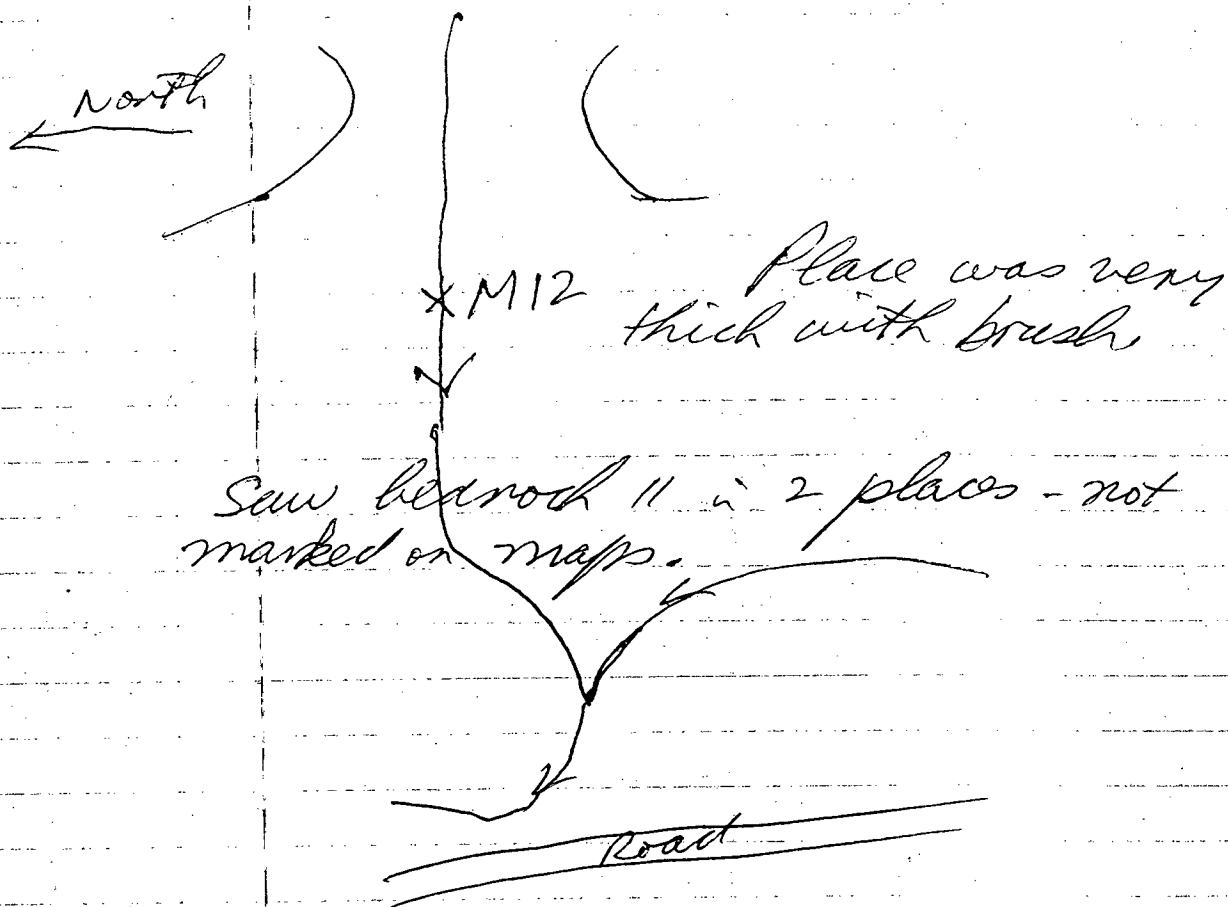 North
x M12
Place was very
thick with brush
Saw bedrock 11 in 2 places - not
marked on maps.
Road